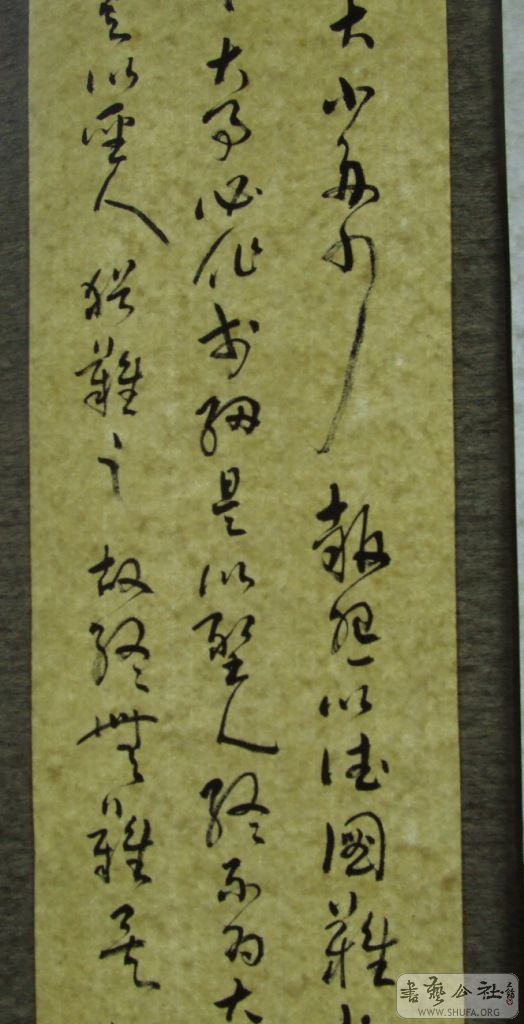 大小多少報怨以德圖難
大事必作於細是以聖人終不為大
是以聖人猶難之故終無難矣
書藝公社
WWW.SHUFA.ORG